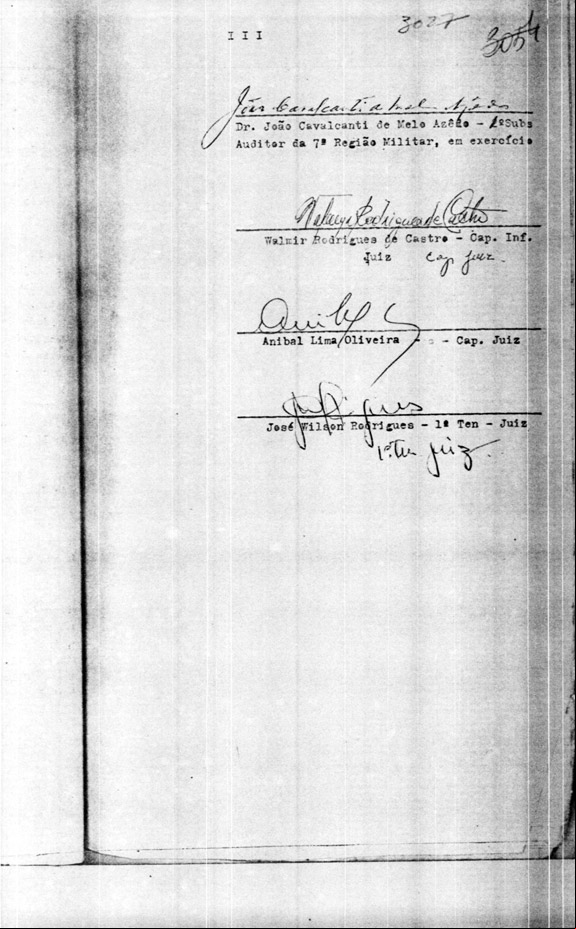 III
3027
3054
João Cavalcanti de Melo Azêdo
Dr. João Cavalcanti de Melo Azêdo - 1ºSubs
Auditor da 7ª Região Militar, em exercício
Walmir Rodrigues de Castro
Walmir Rodrigues de Castro - Cap. Inf.
Juiz Cap. Juiz.
Anibal Lima Oliveira - Cap. Juiz
José Wilson Rodrigues - 1º Ten - Juiz
1º Ten Juiz.